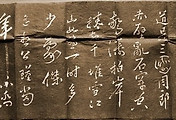 道是三國周郎
赤壁亂石穿空
驚濤拍岸
捲起千堆雪江
山如畫一時多
少豪傑
遙想公瑾當
年小喬